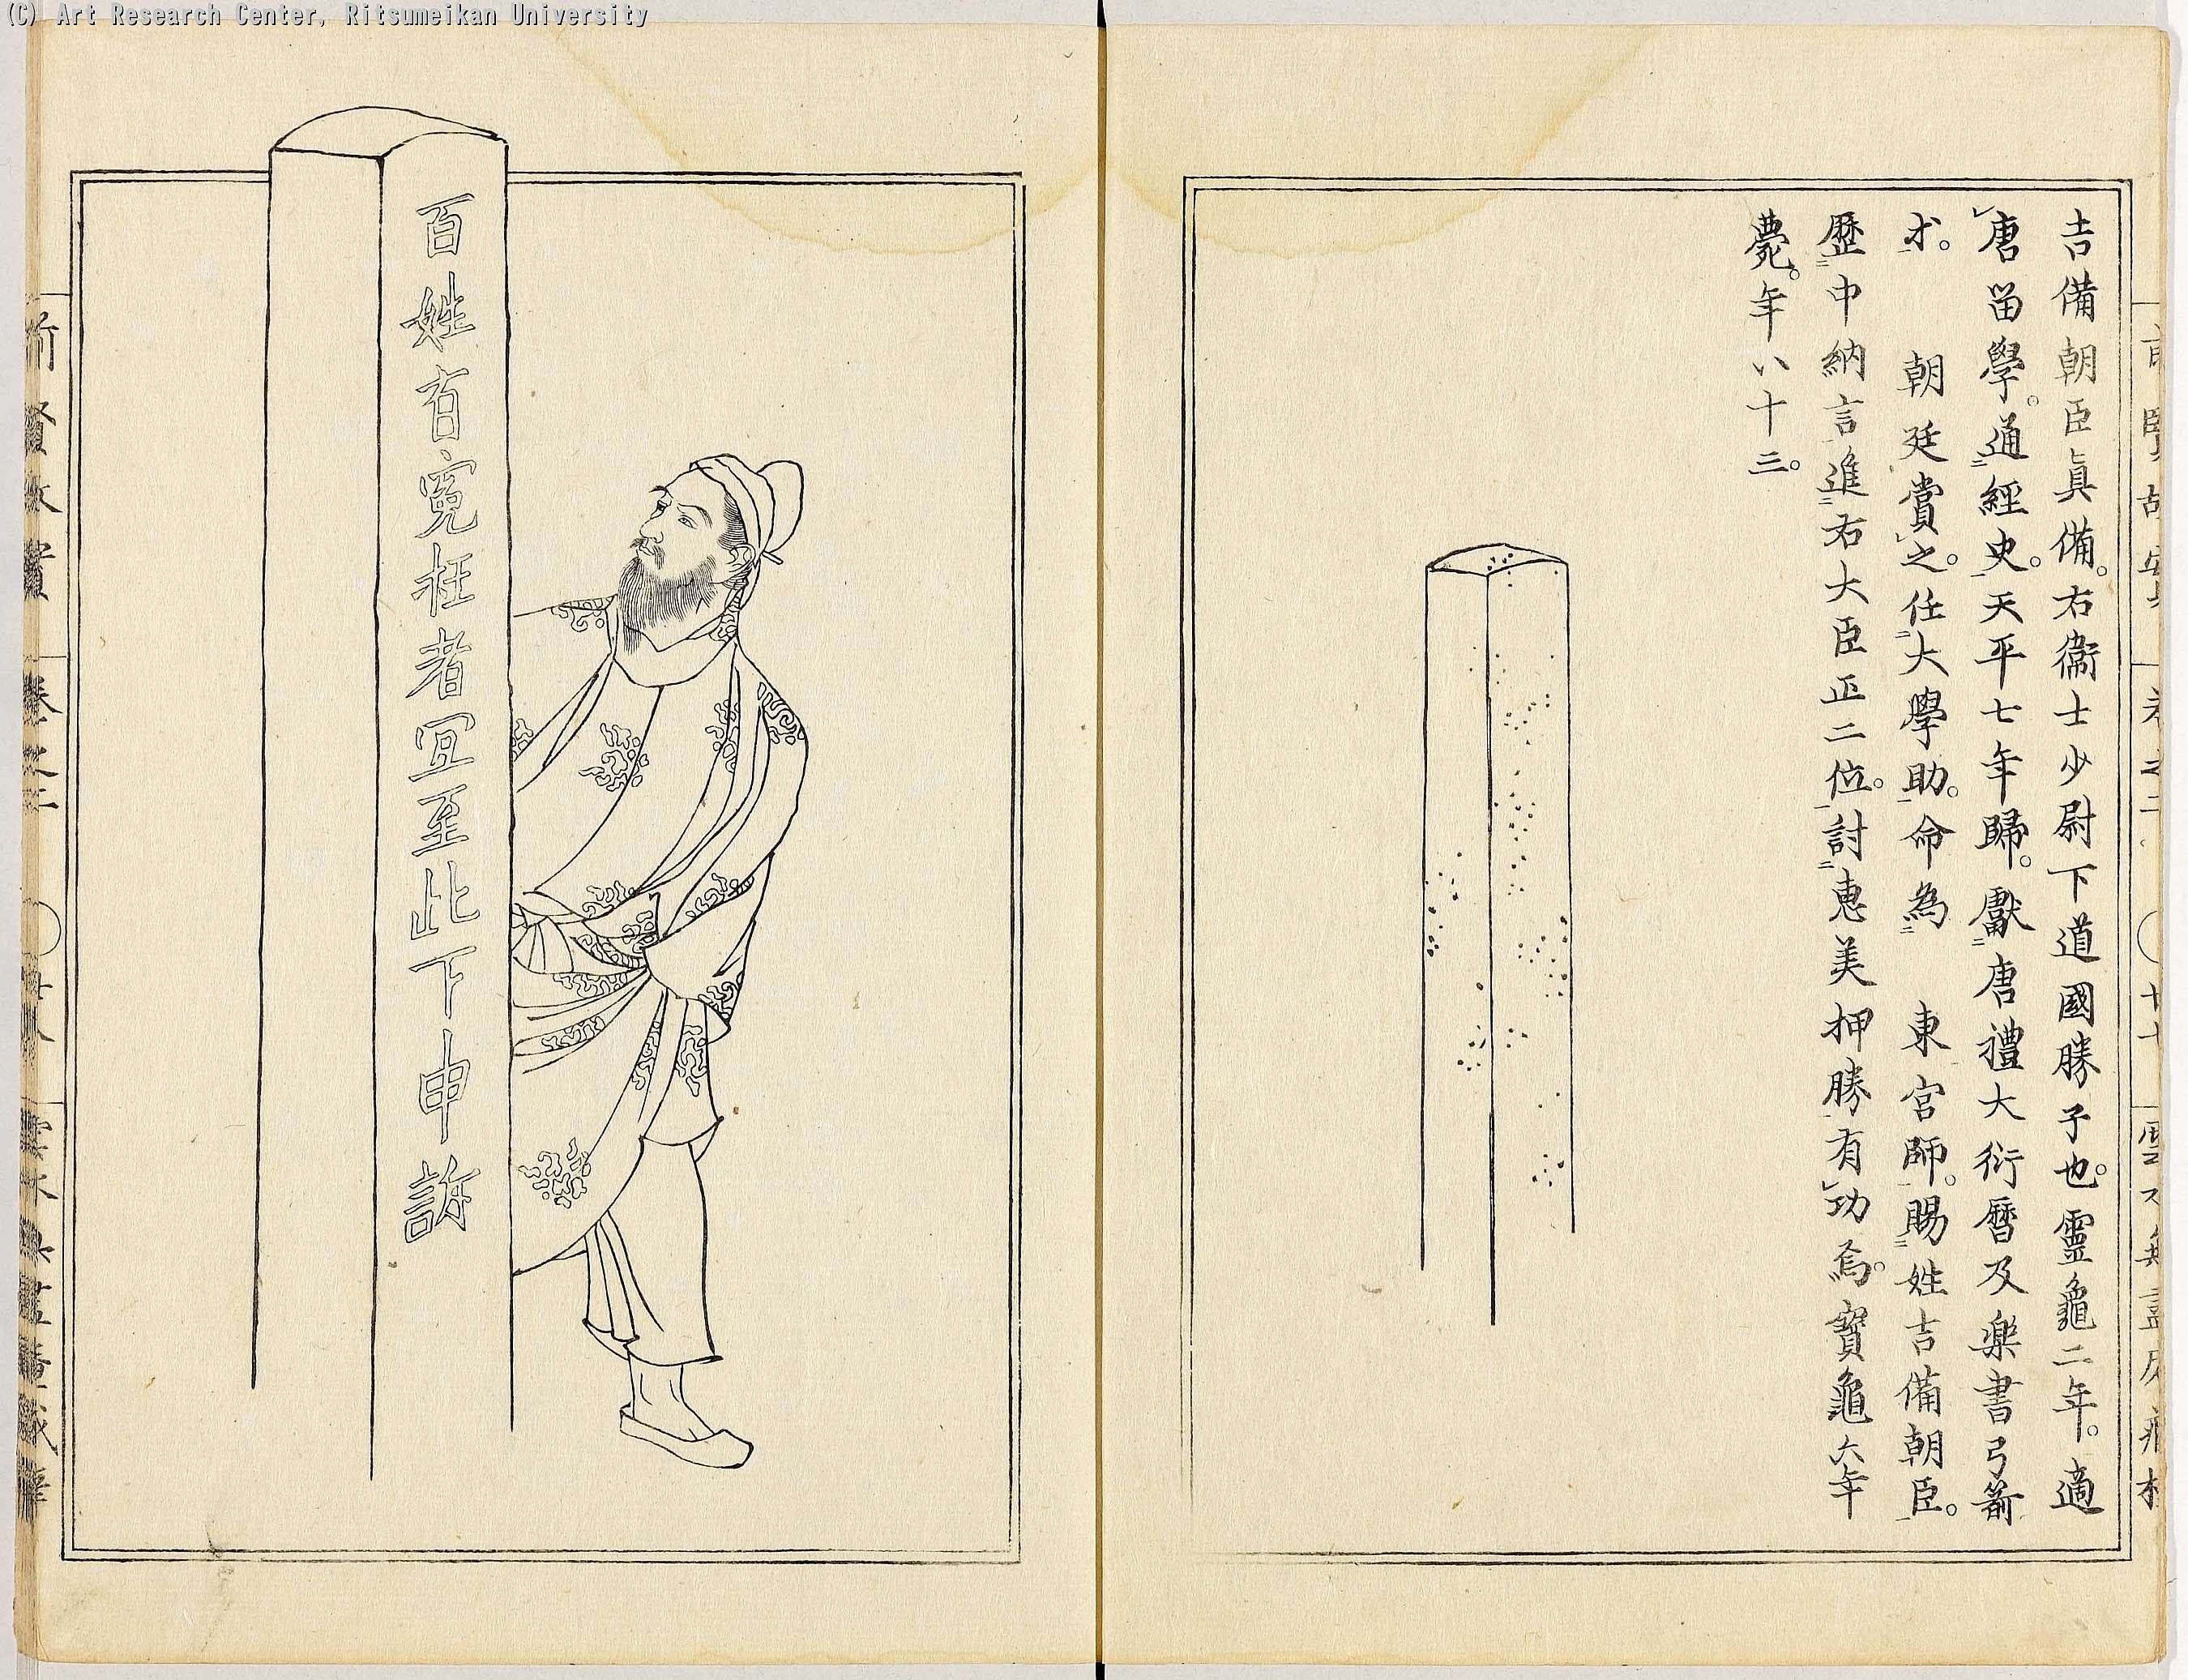 (C) Art Research Center, Ritsumeikan University
吉備朝臣眞備。右衞士少尉下道國勝子也。靈龜二年。適
唐留學。通經史。天平七年歸。獻唐禮大衍曆及樂書弓箭
求。　朝廷賞之。任大學助。命為　東宮師。賜姓吉備朝臣。
歷中納言進右大臣正二位。討惠美押勝有功焉。寶龜六年
薨。年八十三。
百姓有寃枉者冝至此下申訴
前賢故實
卷之二